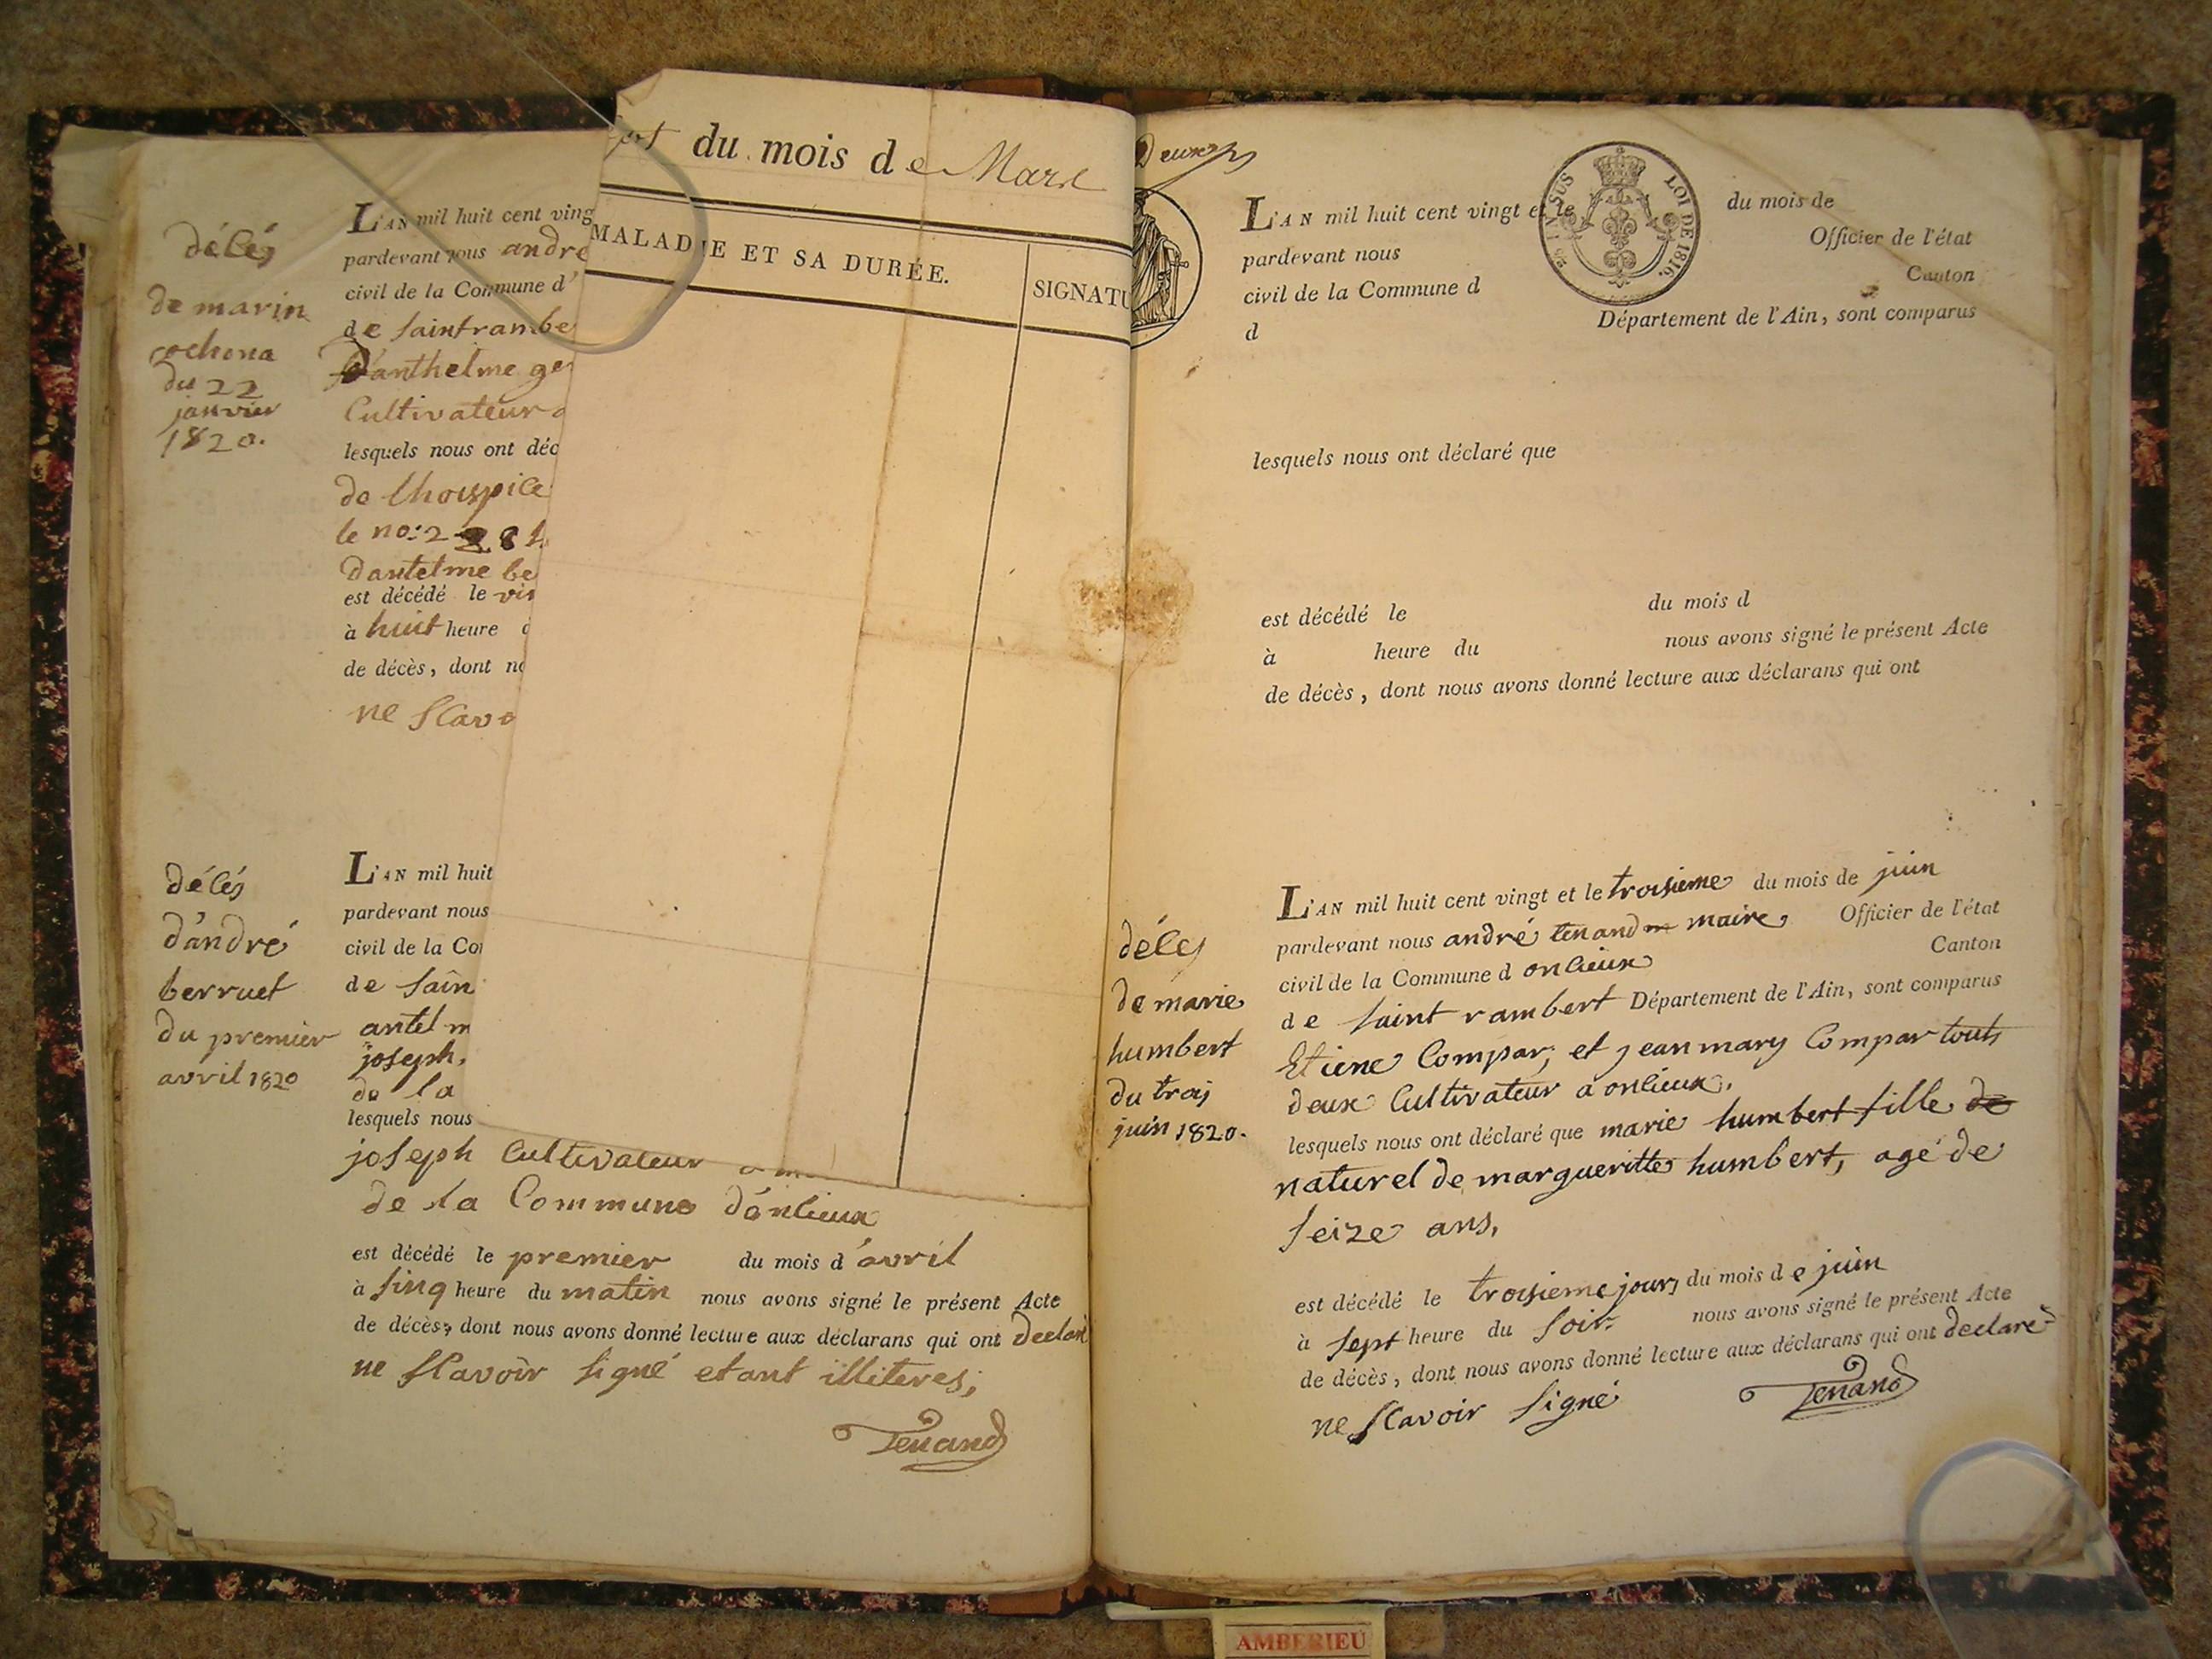 décés
de marin
cochona
du 22
janvier
1820.
L'AN mil huit cent ving
pardevant nous andré
civil de la Commune d'
de saintrambe
D'anthelme ge
Cultivateur a
lesquels nous ont déc
de lhospice
le no: 2
dantelme be
est décédé le vin
à huit heure d
de décès, dont no
ne scavo
du mois de Mars
MALADIE ET SA DURÉE.
SIGNATU
décés
d'andré
berruet
du premier
avril 1820
L'AN mil huit
pardevant nous
civil de la Co
de sain
antelm
joseph,
de la
lesquels nous
joseph Cultivateur a
de la Commune d'onlieux
est décédé le premier du mois d'avril
à sinq heure du matin nous avons signé le présent Acte
de décès, dont nous avons donné lecture aux déclarans qui ont declaré
ne scavoir signé etant illiteres;
Tenand
Deux
L'AN mil huit cent vingt et le du mois de
EN SUS
LOI DE 1816.
pardevant nous Officier de l'état
civil de la Commune d Canton
d Département de l'Ain, sont comparus
lesquels nous ont déclaré que
est décédé le du mois d
à heure du nous avons signé le présent Acte
de décès, dont nous avons donné lecture aux déclarans qui ont
décés
de marie
humbert
du trois
juin 1820.
L'AN mil huit cent vingt et le troisieme du mois de juin
pardevant nous andré tenand m maire, Officier de l'état
civil de la Commune d onlieux Canton
de saint rambert Département de l'Ain, sont comparus
Etiene Compar, et jean mary Compar touts
deux Cultivateur a onlieux.
lesquels nous ont déclaré que marie humbert fille de
naturel de margueritte humbert, agé de
seize ans,
est décédé le troisieme jour, du mois de juin
à sept heure du soir. nous avons signé le présent Acte
de décès, dont nous avons donné lecture aux déclarans qui ont declaré
ne scavoir signé
Tenand
AMBERIEU